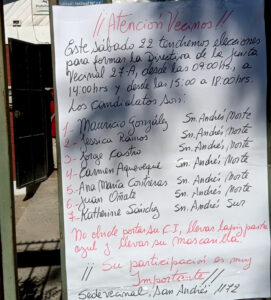 ¡¡Atención Vecinos!!
Este sábado 22 tendremos elecciones
para formar la Directiva de la Junta
Vecinal 27-A, desde las 09:00hs, a
14:00hrs y desde las 15:00 a 18:00hrs.
Los candidatos son:
1- Mauricio González Sn. Andrés Norte
2- Jessica Ramos Sn. Andrés, Norte
3- Jorge Castro Sn. Andrés, Norte
4- Carmen Sn. Andrés Norte
5- Ana María Contreras Sn. Andrés Norte
6- Juan Oñate Sn. Andrés Norte
7- Katherine Sánchez Sn. Andrés Sur
No olvide portar su C.I, llevar lápiz pasta
azul y llevar su mascarilla.
¡¡Su participación es muy
Importante!!
Sede vecinal, San Andrés 1172